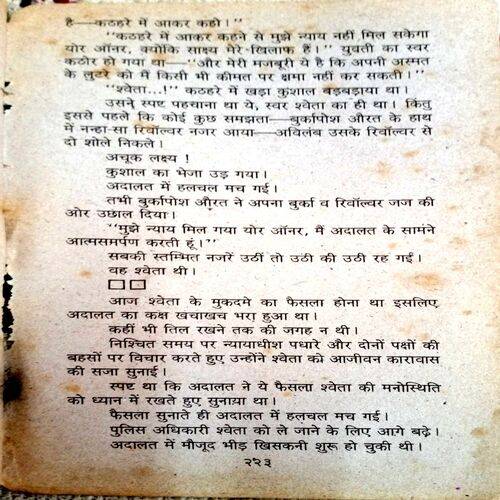 है—कठहरे में आकर कहो।''
''कठहरे में आकर कहने से मुझे न्याय नहीं मिल सकेगा
योर ऑनर, क्योंकि साक्ष्य मेरे खिलाफ हैं।'' युवती का स्वर
कठोर हो गया था—''और मेरी मजबूरी ये है कि अपनी अस्मत
के लुटेरे को मैं किसी भी कीमत पर क्षमा नहीं कर सकती।''
''श्वेता...!'' कठहरे में खड़ा कुशाल बड़बड़ाया था।
उसने स्पष्ट पहचाना था ये, स्वर श्वेता का ही था। किंतु
इससे पहले कि कोई कुछ समझता—बुर्कापोश औरत के हाथ
में नन्हा-सा रिवॉल्वर नजर आया—अविलंब उसके रिवॉल्वर से
दो शोले निकले।
अचूक लक्ष्य !
कुशाल का भेजा उड़ गया।
अदालत में हलचल मच गई।
तभी बुर्कापोश औरत ने अपना बुर्का व रिवॉल्वर जज की
ओर उछाल दिया।
''मुझे न्याय मिल गया योर ऑनर, मैं अदालत के सामने
आत्मसमर्पण करती हूं।''
सबकी स्तम्भित नजरें उठीं तो उठी की उठी रह गईं।
वह श्वेता थी।
□□
आज श्वेता के मुकदमे का फैसला होना था इसलिए
अदालत का कक्ष खचाखच भरा हुआ था।
कहीं भी तिल रखने तक की जगह न थी।
निश्चित समय पर न्यायाधीश पधारे और दोनों पक्षों की
बहसों पर विचार करते हुए उन्होंने श्वेता को आजीवन कारावास
की सजा सुनाई।
स्पष्ट था कि अदालत ने ये फैसला श्वेता की मनोस्थिति
को ध्यान में रखते हुए सुनाया था।
फैसला सुनाते ही अदालत में हलचल मच गई।
पुलिस अधिकारी श्वेता को ले जाने के लिए आगे बढ़े।
अदालत में मौजूद भीड़ खिसकनी शुरू हो चुकी थी।
२२३